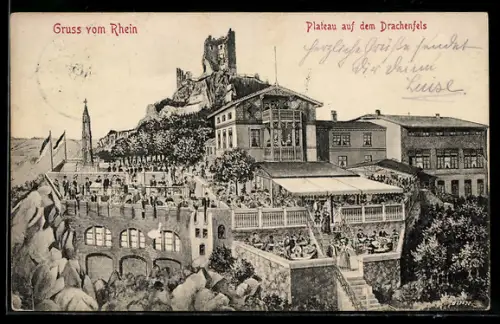 Gruss vom Rhein
Plateau auf dem Drachenfels
Herzliche Grüße sendet
Dir deine
Luise